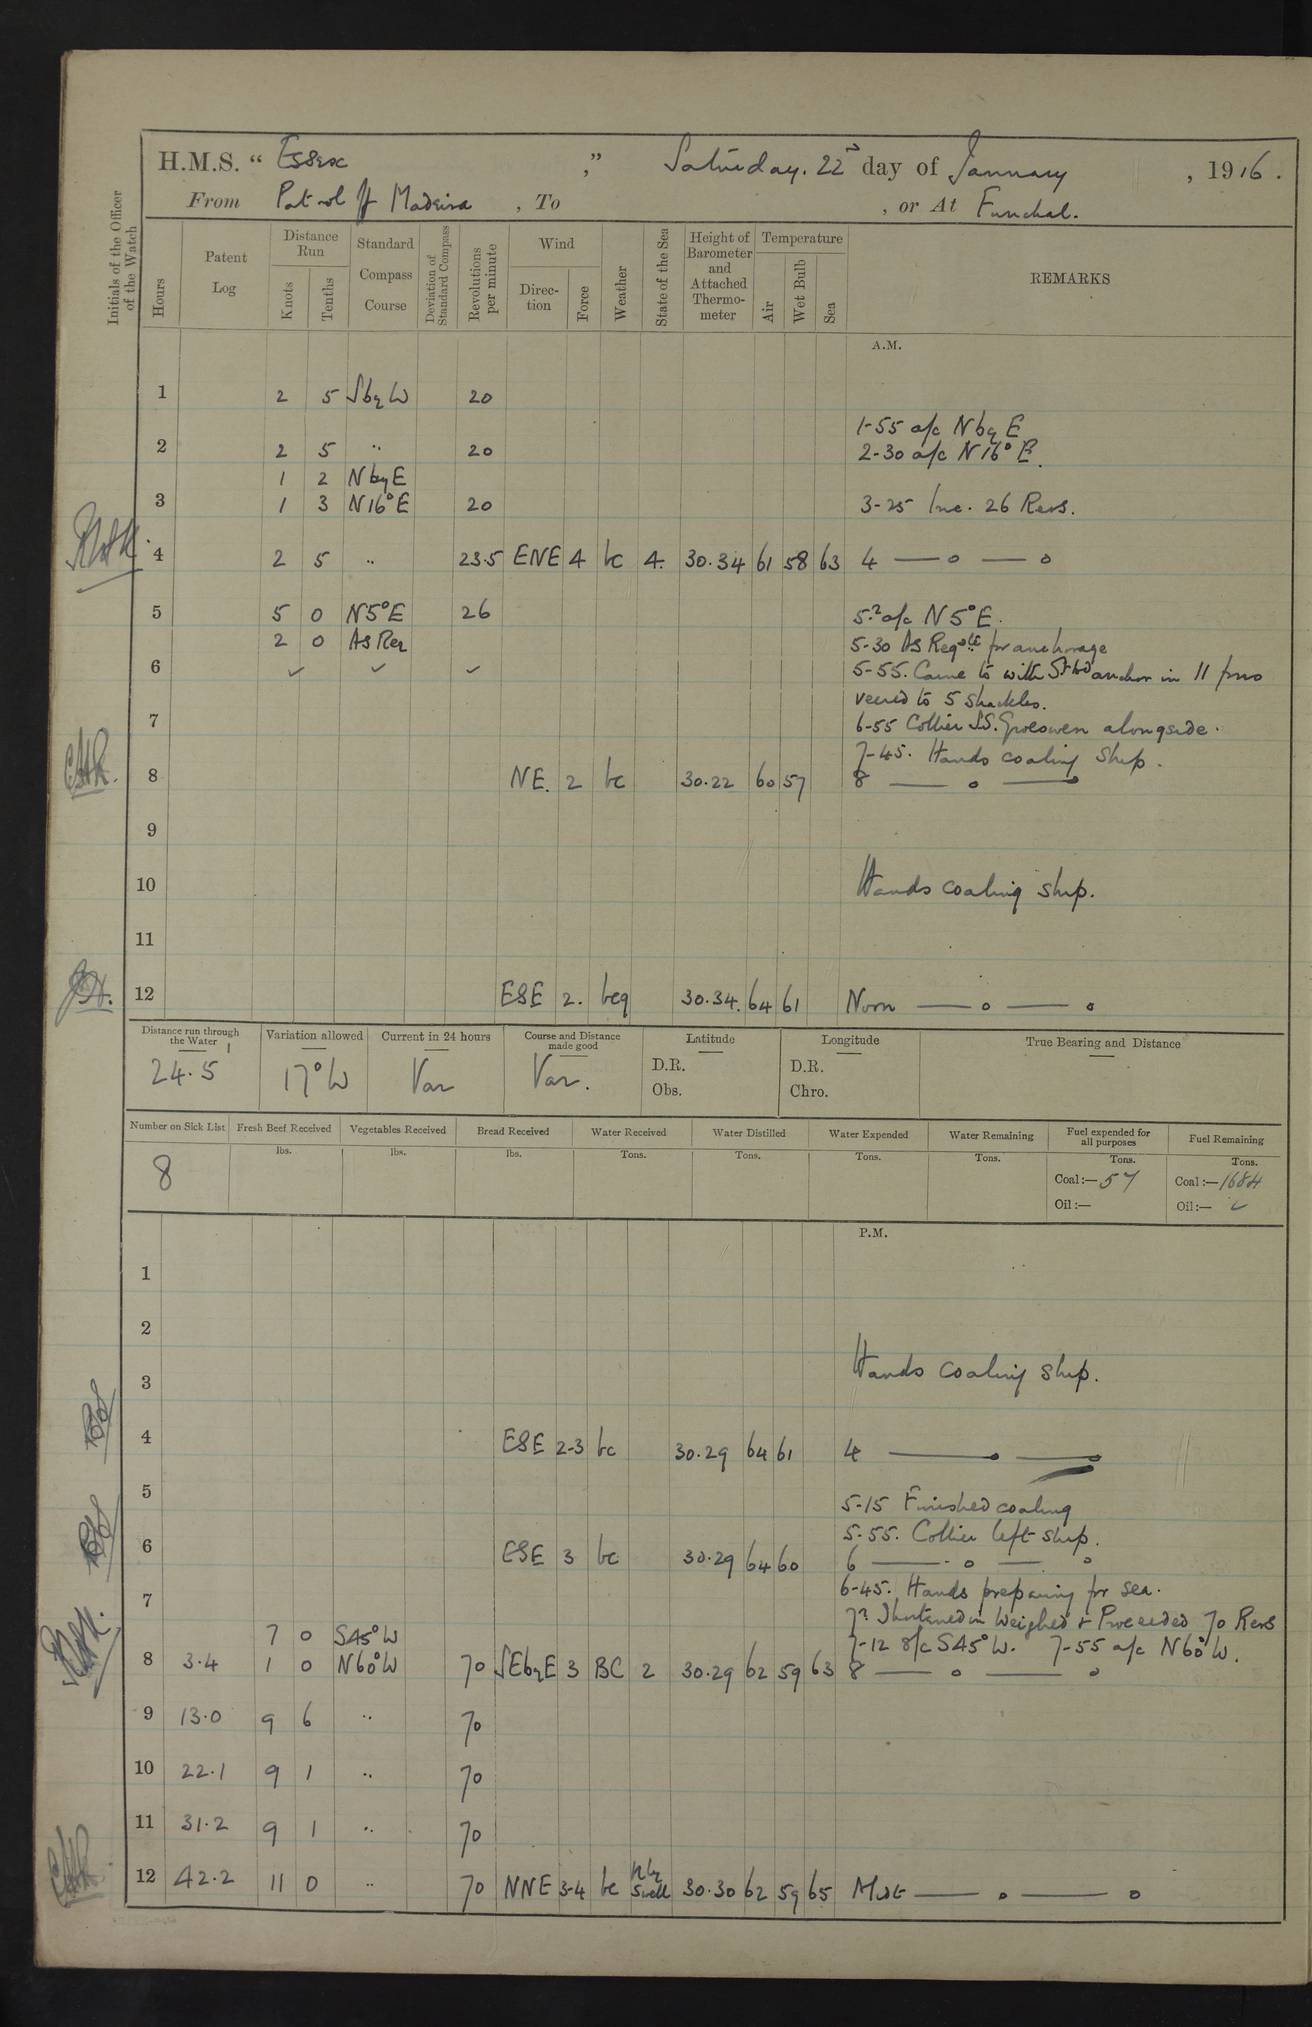 H.M.S. “ Essex ,” Saturday. 22nd day of January , 1916.
From Patrol off Madeira , To , or At Funchal.
Initials of the Officer of the Watch
Hours
Patent Log
Distance Run
Knots
Tenths
Standard Compass Course
Deviation of Standard Compass
Revolutions per minute
Wind
Direc-tion
Force
Weather
State of the Sea
Height of Barometer and Attached Thermo-meter
Temperature
Air
Wet Bulb
Sea
REMARKS
A.M.
1 2 5 S by W 20
1-55 a/c N by E
2 2 5 " 20 2-30 a/c N16°E.
1 2 N by E
3 1 3 N16°E 20 3-25 Inc. 26 Revs.
4 2 5 " 23.5 ENE 4 bc 4. 30.34 61 58 63 4 — o — o
5 5 0 N5°E 26 5.0 a/c N5°E.
2 0 As Req 5-30 As Reqte for anchorage
6 ✓ ✓ ✓ 5-55. Came to with Stbd anchor in 11 fms
veered to 5 shackles.
7 6-55 Collier S.S. Groeswen alongside.
7-45. Hands coaling ship.
8 NE. 2 bc 30.22 60 57 8 — o —
9
10 Hands coaling ship.
11
12 ESE 2. bcq 30.34. 64 61 Noon — o — o
Distance run through the Water Variation allowed Current in 24 hours Course and Distance made good Latitude Longitude True Bearing and Distance
24.5 17°W Var Var. D.R. D.R.
Obs. Chro.
Number on Sick List Fresh Beef Received Vegetables Received Bread Received Water Received Water Distilled Water Expended Water Remaining Fuel expended for all purposes Fuel Remaining
lbs. lbs. lbs. Tons. Tons. Tons. Tons. Tons. Tons.
8 Coal:— 57 Coal:— 1684
Oil:— Oil:— ✓
P.M.
1
2
3 Hands coaling ship.
4 ESE 2-3 bc 30.29 64 61 4 — o — o
5 5-15 Finished coaling
5-55. Collier left ship.
6 ESE 3 bc 30.29 64 60 6 — o — o
6-45. Hands preparing for sea.
7 7.0 Shortened in Weighed & Proceeded 70 Revs
7 0 S45°W 7-12 S/c S45°W. 7-55 a/c N60°W.
8 3.4 1 0 N60°W 70 SEbyE 3 BC 2 30.29 62 59 63 8 — o — o
9 13.0 9 6 " 70
10 22.1 9 1 " 70
11 31.2 9 1 " 70
12 42.2 11 0 " 70 NNE 3-4 bc Nly Swell 30.30 62 59 65 Mdt — o — o